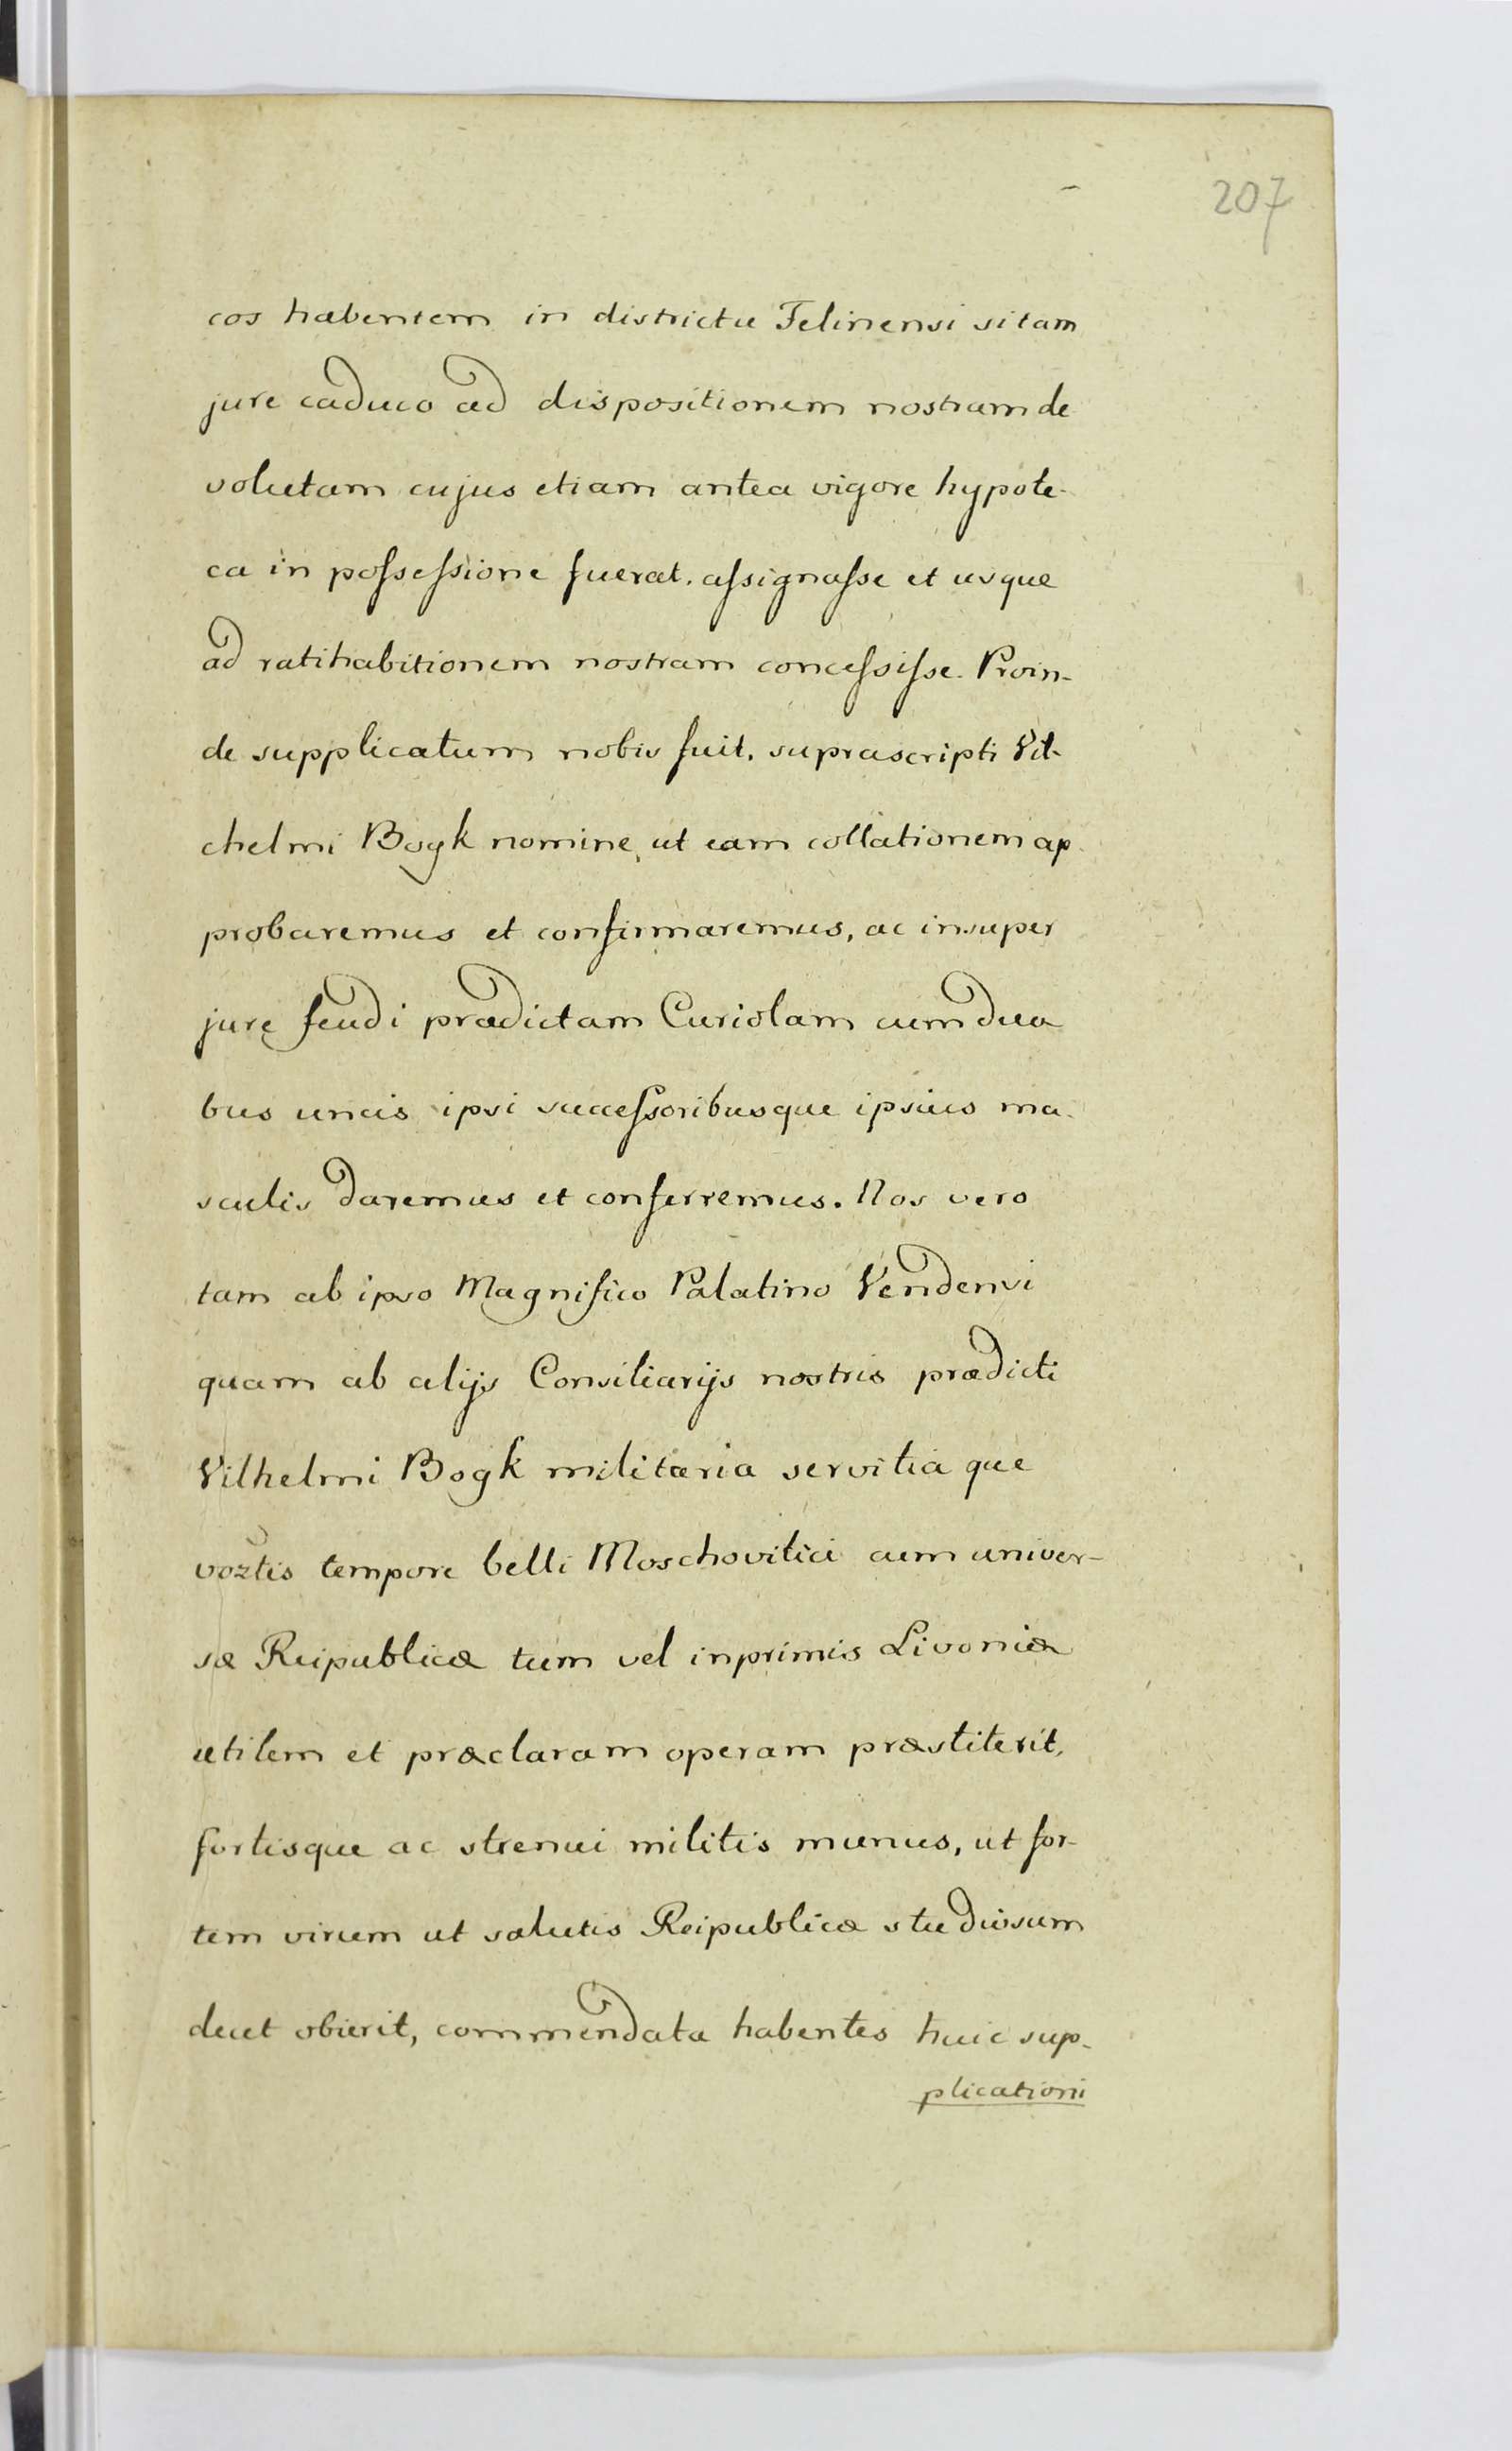 207
cos habentem in districtu Felinensi sitam
jure caduco ad dispositionem nostram de
volutam cujus etiam antea vigore hypote-
ca in possessione fuerat. assignasse et usque
ad ratihabitionem nostram concessisse. Proin-
de supplicatum nobis fuit. suprascripti Vil-
chelmi Bogk nomine, ut eam collationem ap-
probaremus et confirmaremus, ac insuper
jure feudi prædictam Curiolam cum dua
bus uncis ipsi successoribusque ipsius ma-
sculis daremus et conferremus. Nos vero
tam ab ipso Magnifico Palatino Vendensi
quam ab alijs Consiliarijs nostris prædicti
Vilhelmi Bogk militaria servitia que
tempore belli Moschovitici cum univer-
sæ Reipublicæ tum vel inprimis Livoniæ
utilem et præclaram operam præstiterit,
fortisque ac strenui militis munus, ut for-
tem virum ut salutis Reipublicæ studiosum
decet obierit, commendata habentes huic sup-
plicationi